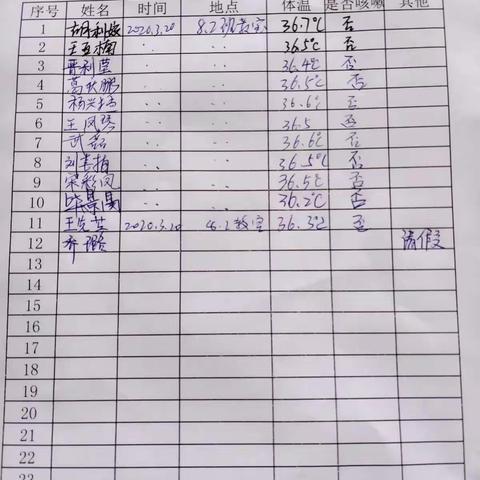 序号 姓名 时间 地点 体温 是否咳嗽 其他
1 胡利 2020.3.20 8.2班教室 36.7℃ 否
2 王亚楠 ‥ ‥ 36.5℃ 否
3 晋利莹 ‥ ‥ 36.4℃ 否
4 高秋鹏 ‥ ‥ 36.5℃ 否
5 杨兴 ‥ ‥ 36.6℃ 否
6 王凤琴 ‥ ‥ 36.5 否
7 武磊 ‥ ‥ 36.6℃ 否
8 刘 ‥ ‥ 36.5℃ 否
9 宋彩凤 ‥ ‥ 36.5℃ 否
10 ‥ ‥ 36.2℃ 否
11 王 2020.3.20 8.2教室 36.3℃ 否
12 乔璐 请假
13
14
15
16
17
18
19
20
21
22
23